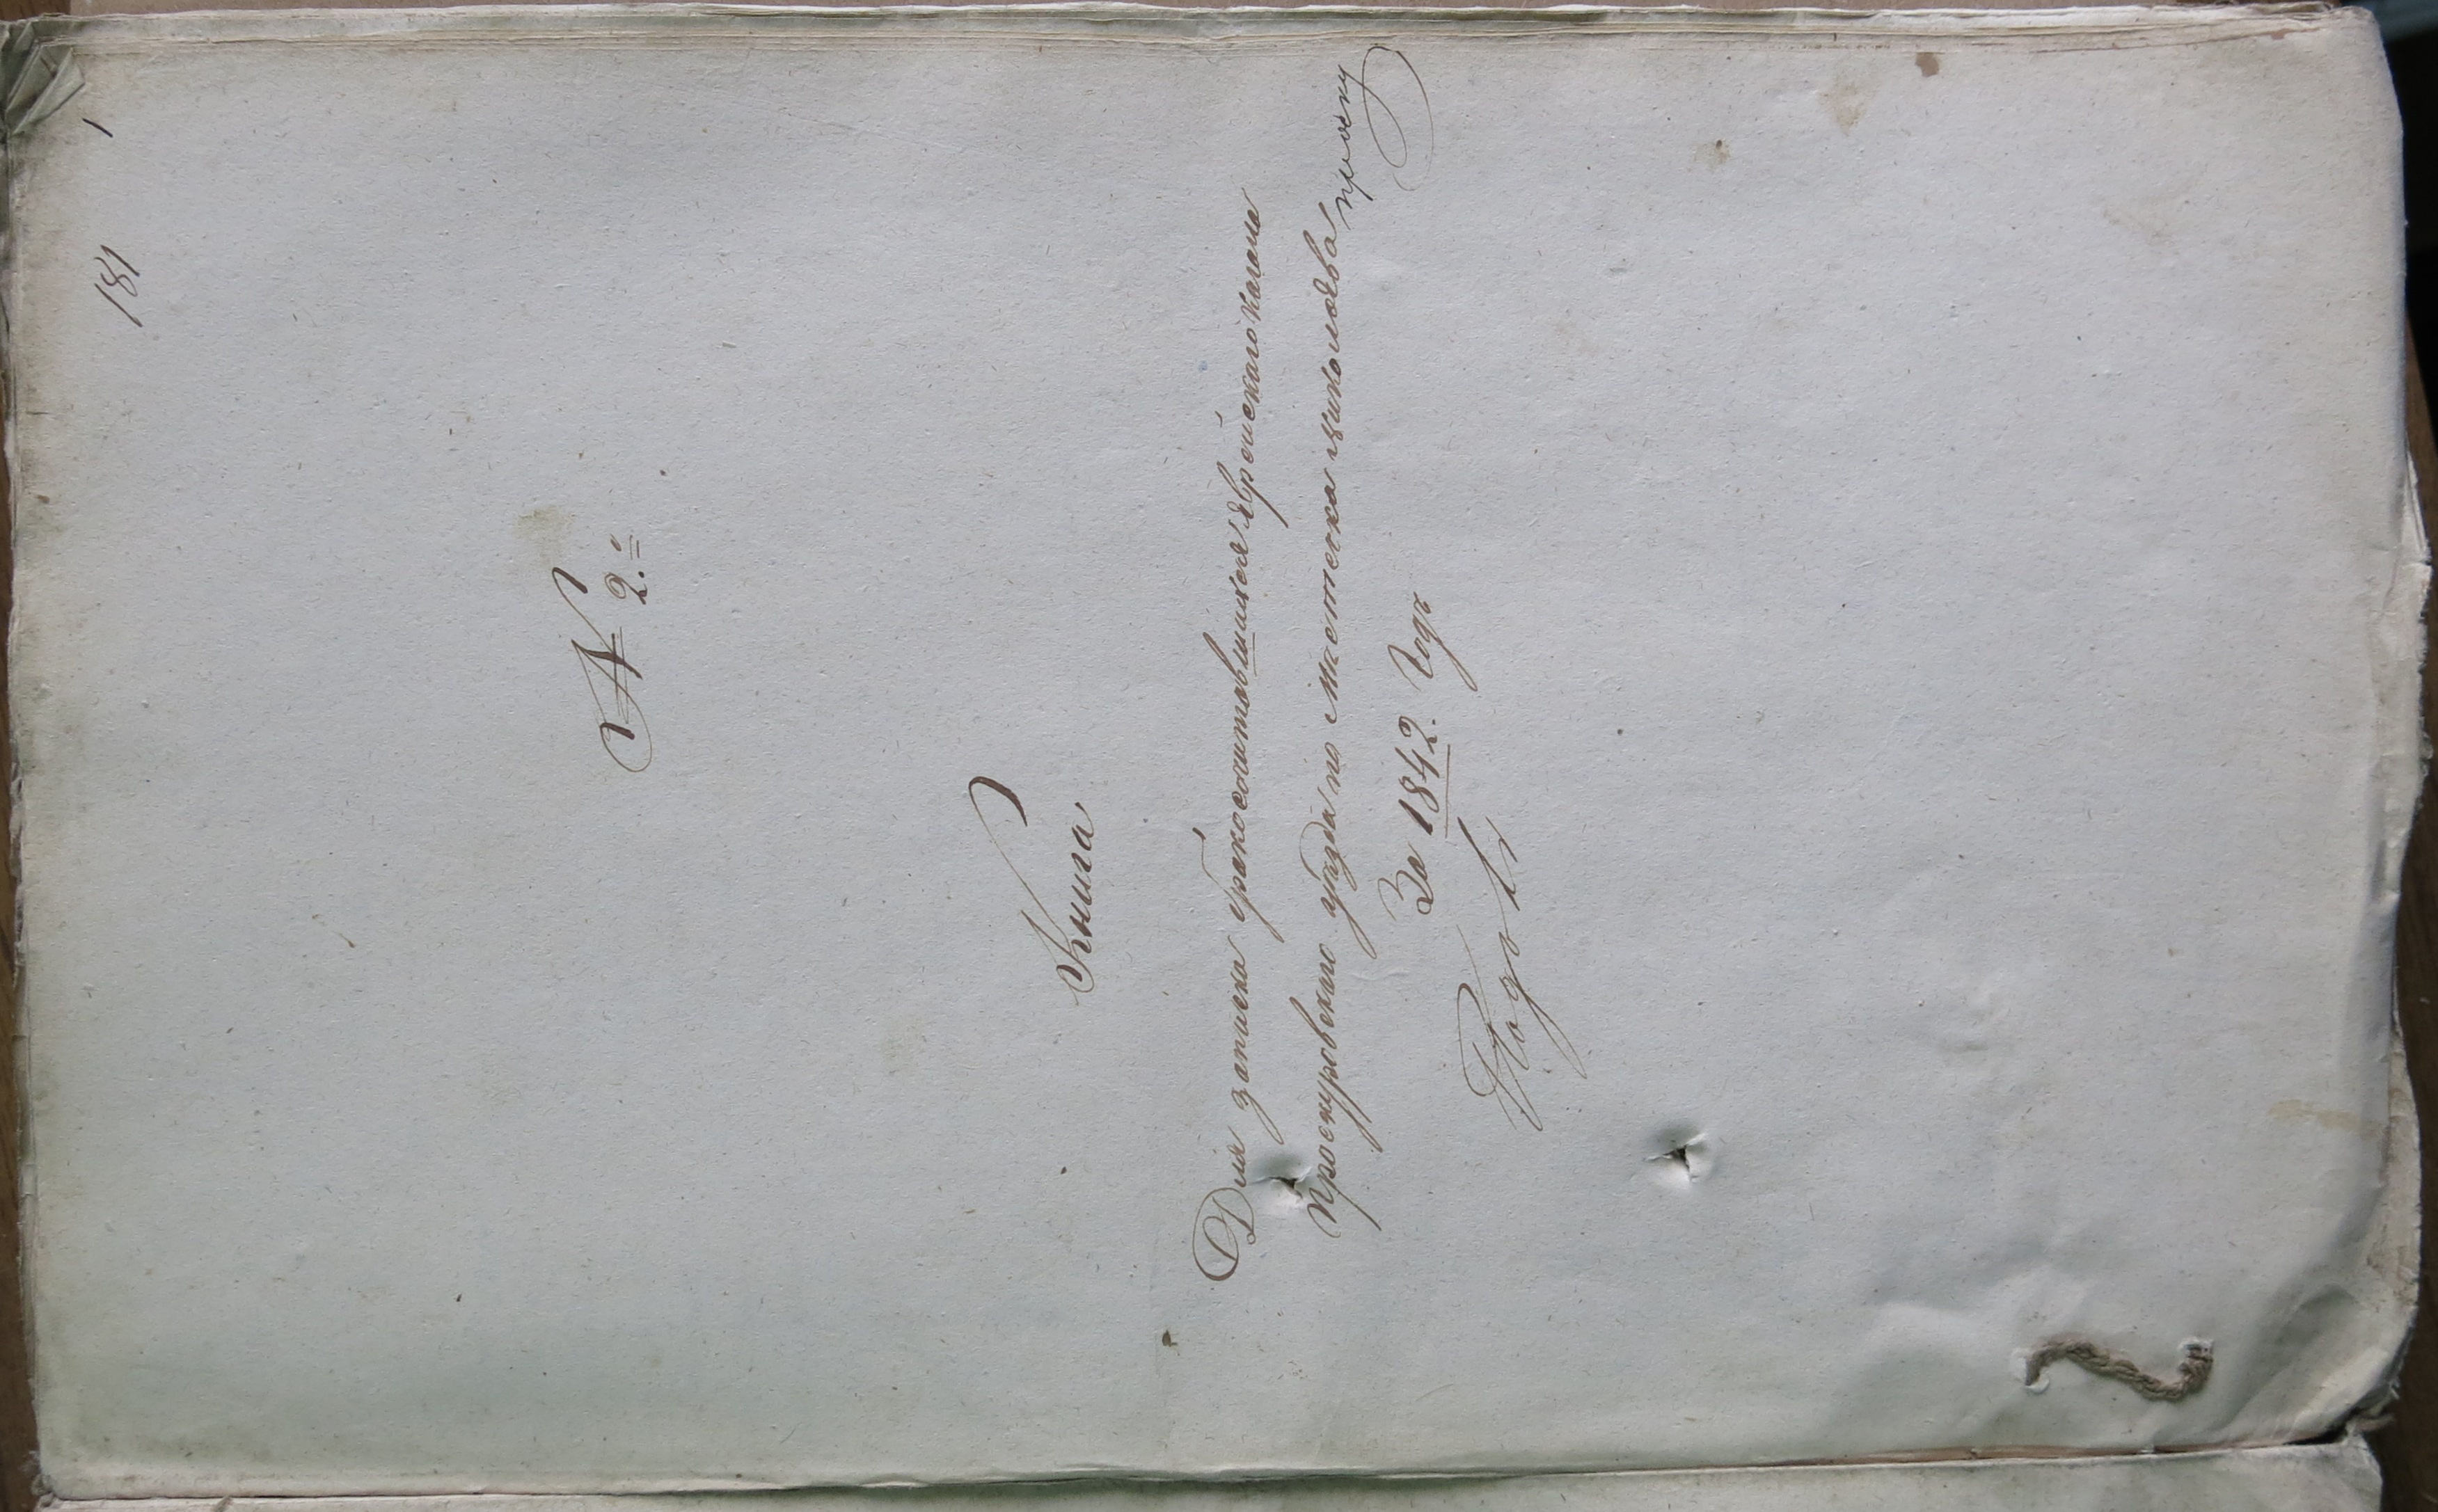 1
181
№ 2.
Книга
Для записки бракосочитовшихся Еврейскаго Кагала
Проскуровскаго уезда по местечка Миколаева
За 1842. Годъ